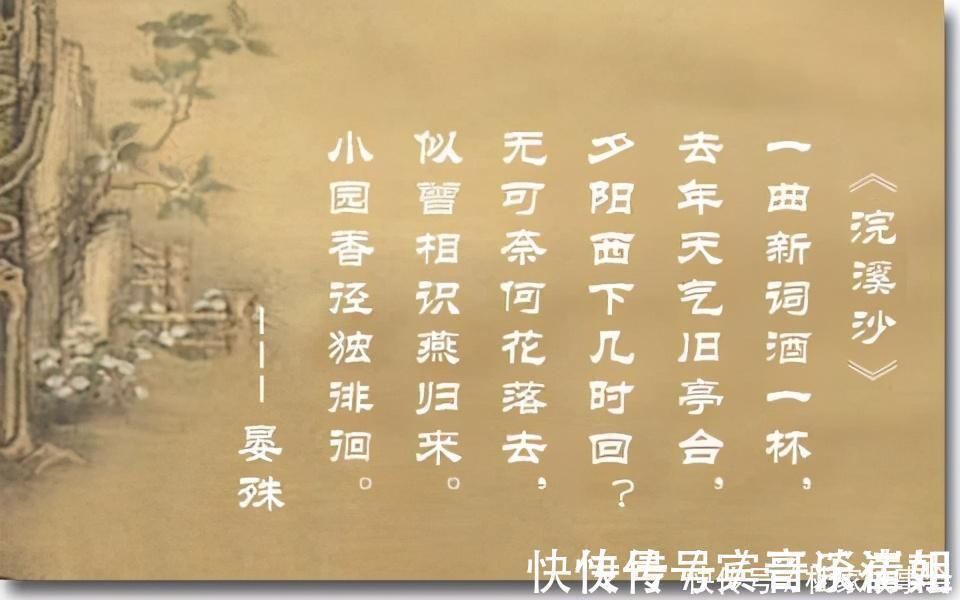 《浣溪沙》
一曲新词酒一杯，
去年天气旧亭台，
夕阳西下几时回？
无可奈何花落去，
似曾相识燕归来。
小园香径独徘徊。
———晏殊